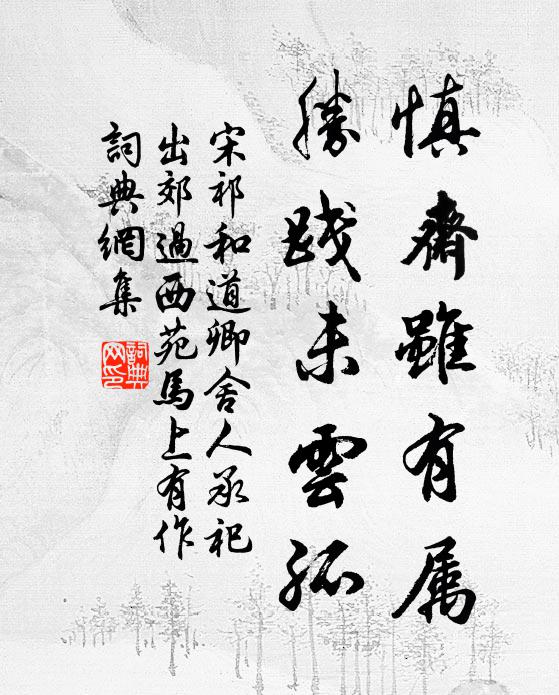 慎齋雖有属
勝踐未雲孤
宋祁和道卿舍人承祀
出郊過西苑馬上有作
詞典網集
詞典网印